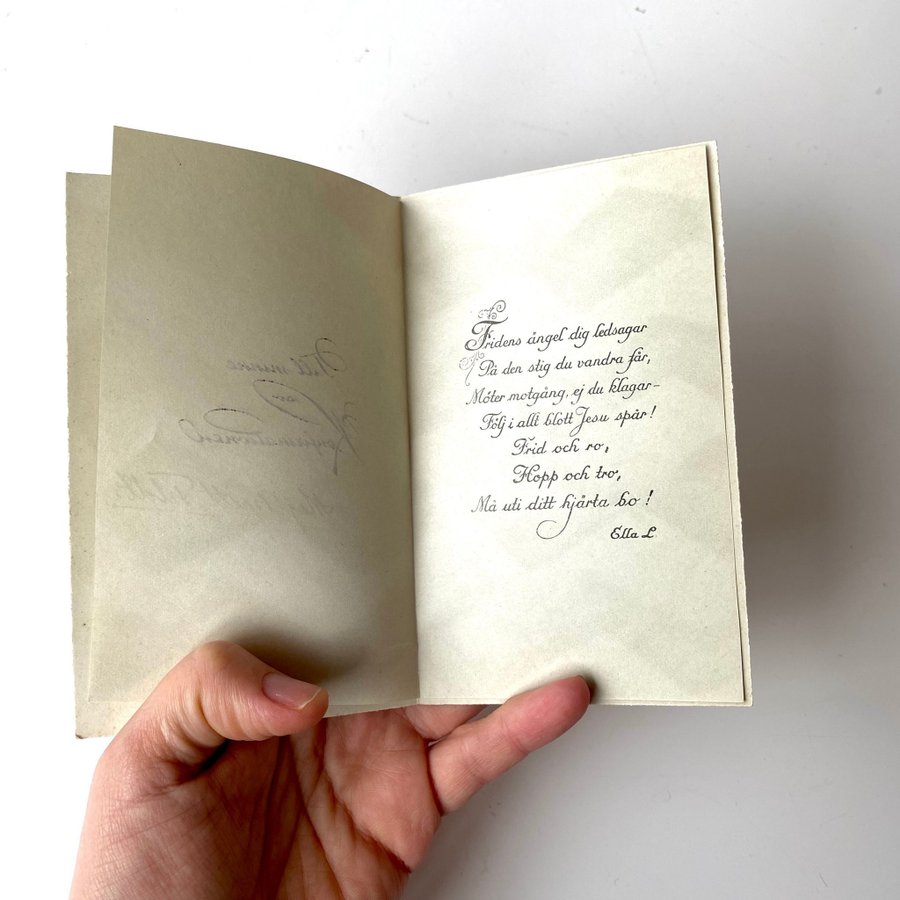 Till minne
av
Konfirmationen
Fridens ängel dig ledsagar
På den stig du vandra får,
Möter motgång, ej du klagar –
Följ i allt blott Jesu spår!
Frid och ro,
Hopp och tro,
Må uti ditt hjärta bo!
Ella L.